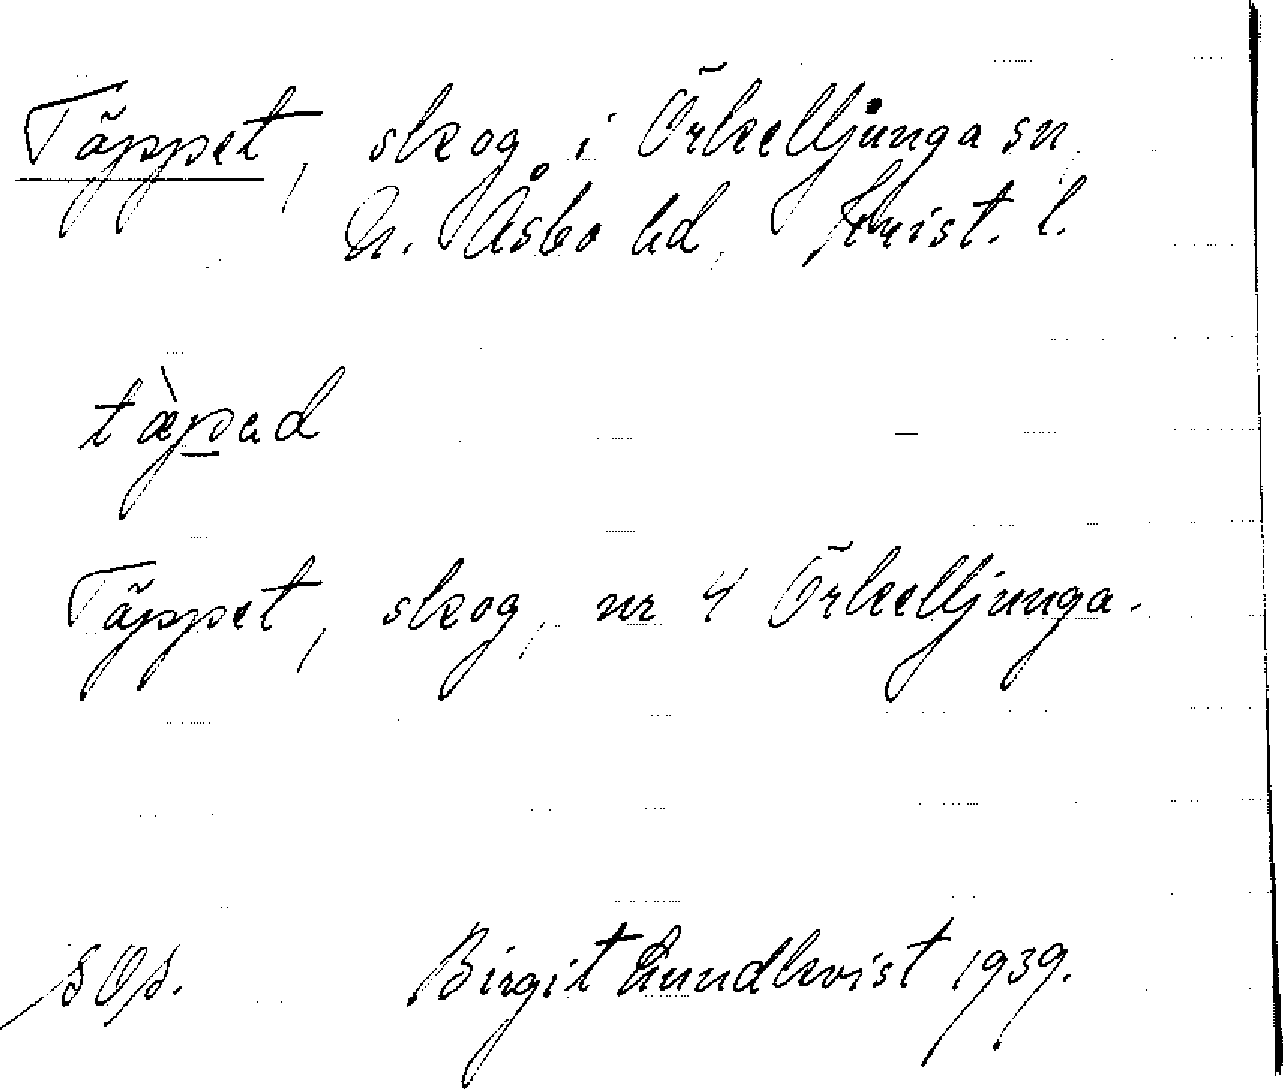 Täppet, skog i Örkelljunga sn,
N. Åsbo hd, Krist. l.
tæ̀pad
Täppet, skog, nr 4 Örkelljunga.
Birgit Lundkvist 1939.